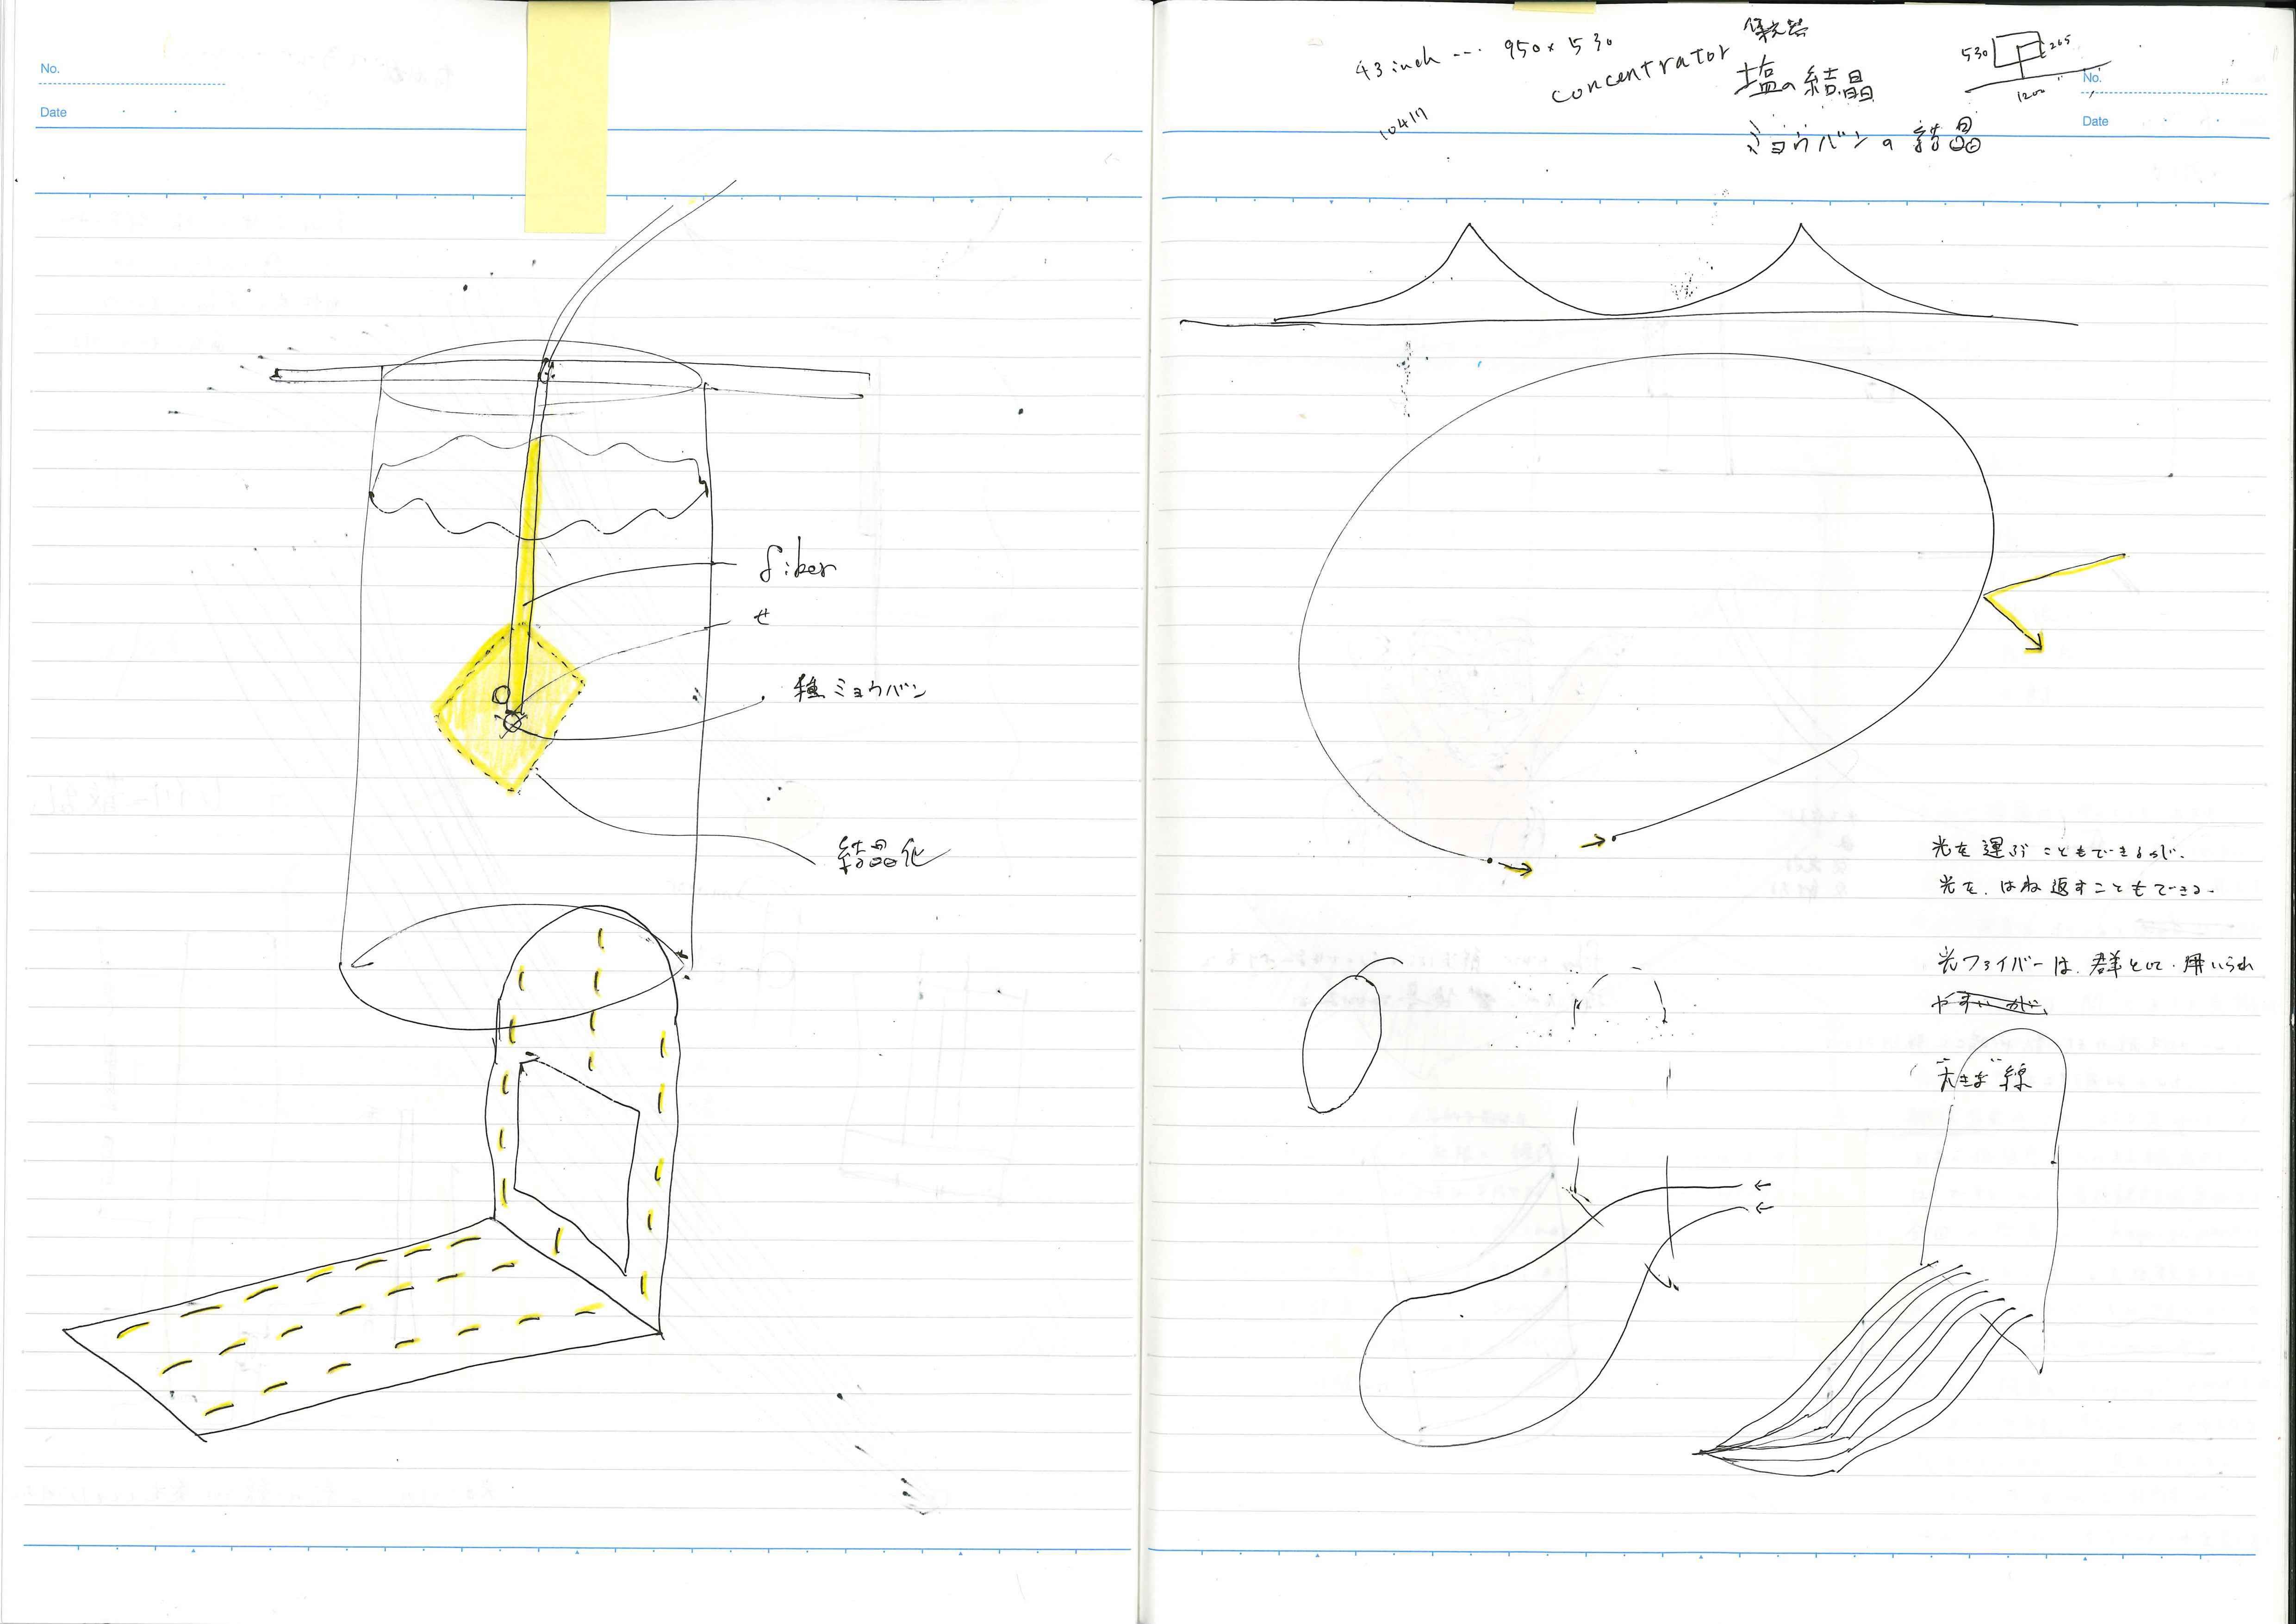 No.
Date
fiber
せ
種ミョウバン
結晶化
43 inch --- 950 × 530
concentrator
10417
塩の結晶
ミョウバンの結晶
530
265
1200
No.
Date
光を運ぶこともできるが、
光を、はね返すこともできる。
光ファイバーは、群として、用いられ
やすいが、